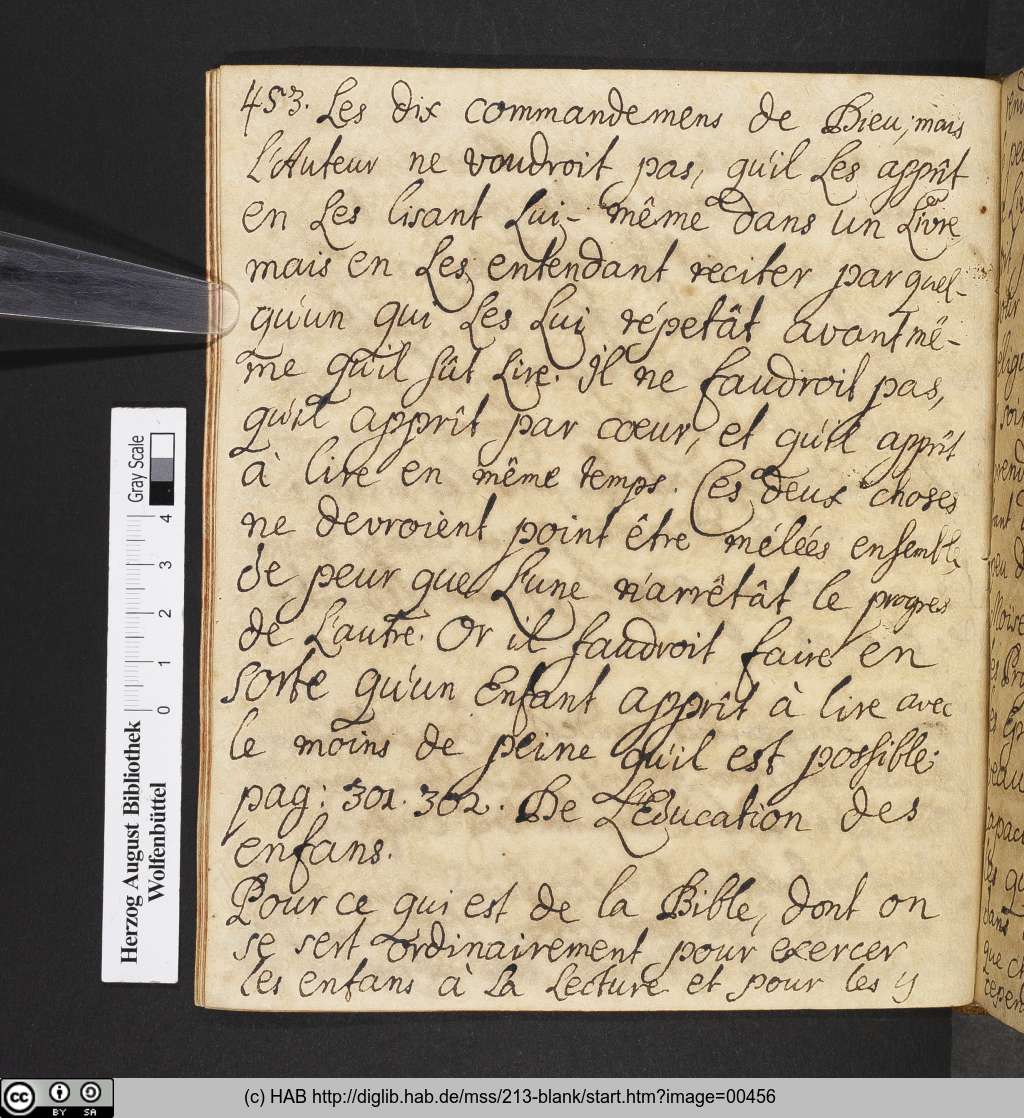 453. Les dix commandemens de Dieu; mais
L'Auteur ne voudroit pas, qu'il Les apprît
en Les lisant Lui-même dans un Livre
mais en Les entendant reciter par quel-
qu'un qui Les Lui répetât avant mê-
me qu'il sût Lire. Il ne faudroit pas,
qu'il apprît par cœur, et qu'il apprît
à lire en même temps. Ces deux choses
ne devroient point être mélées ensemble
de peur que L'une n'arrêtât le progres
de L'autre. Or il faudroit faire en
sorte qu'un Enfant apprît à lire avec
le moins de peine qu'il est possible;
pag: 301. 302. De L'education des
enfans.
Pour ce qui est de la Bible, dont on
se sert ordinairement pour exercer
les enfans à La Lecture et pour les y
Herzog August Bibliothek
Wolfenbüttel
Gray Scale
0 1 2 3 4
cc BY SA
(c) HAB http://diglib.hab.de/mss/213-blank/start.htm?image=00456